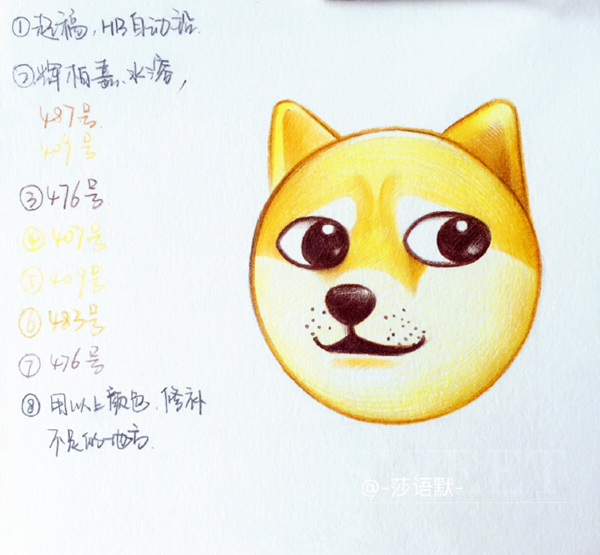 ①起稿，HB自动铅.
②辉柏嘉.水溶，
487号.
409号
③476号
④407号
⑤409号
⑥483号
⑦476号
⑧用以上颜色.修补
不足的地方.
@-莎语默-